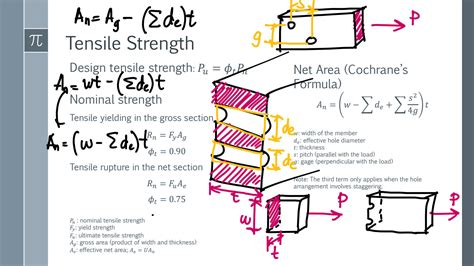 Aₙ = A_g − (Σdₑ)t
π
Tensile Strength
Design tensile strength: Pᵤ = ϕₜPₙ
Aₙ = wt − (Σdₑ)t
Nominal strength
Tensile yielding in the gross section
Aₙ = (w − Σdₑ)t
Rₙ = F_yA_g
ϕₜ = 0.90
Tensile rupture in the net section
Rₙ = FᵤAₑ
ϕₜ = 0.75
Pₙ : nominal tensile strength
F_y: yield strength
Fᵤ: ultimate tensile strength
A_g: gross area (product of width and thickness)
Aₑ: effective net area; AₙU
s
g
P
dₑ
dₑ
w
t
Net Area (Cochrane's
Formula)
Aₙ = (w − Σdₑ + Σ s²/4g) t
w: width of the member
dₑ: effective hole diameter
t: thickness
s: pitch (parallel with the load)
g: gage (perpendicular with the load)
Note: The third term only applies when the hole
arrangement involves staggering.
w
t
P
P